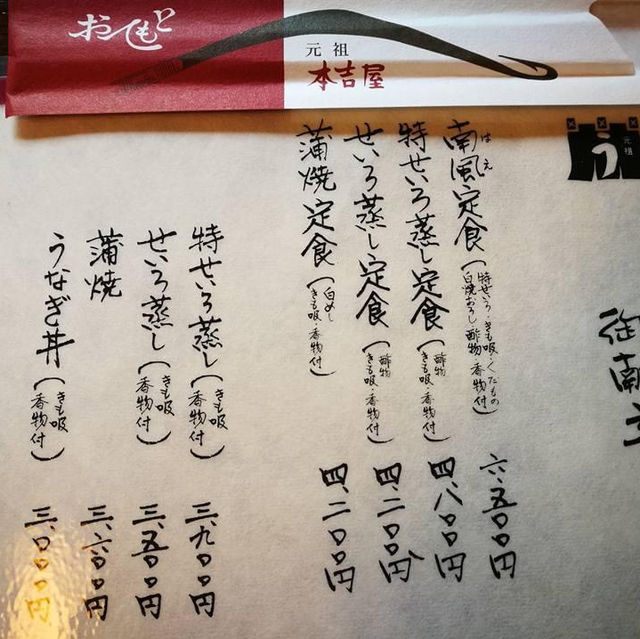 おてもと
元祖
本吉屋
う
元祖
南風定食(特せいろ・きも吸・くだもの 白焼おろし・酢物・香物付)六、五〇〇円
はえ
特せいろ蒸し定食(酢物 きも吸・香物付)四、八〇〇円
せいろ蒸し定食(酢物 きも吸・香物付)四、二〇〇円
蒲焼定食(白めし きも吸・香物付)四、二〇〇円
特せいろ蒸し(きも吸 香物付)三、九〇〇円
せいろ蒸し(きも吸 香物付)三、五〇〇円
蒲焼 三、六〇〇円
うなぎ丼(きも吸 香物付)三、〇〇〇円